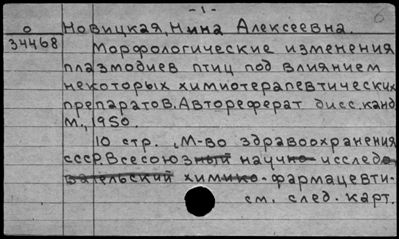 - 1 -
6
Новицкая, Нина Алексеевна.
0
34468
Морфологические изменения
плазмодиев птиц под влиянием
некоторых химиотерапевтических
препаратов. Автореферат дисс. канд.
М., 1950.
10 стр. М-во здравоохранения
СССР. Всесоюзный научно-исследо
вательский химико-фармацевти-
см. след. карт.